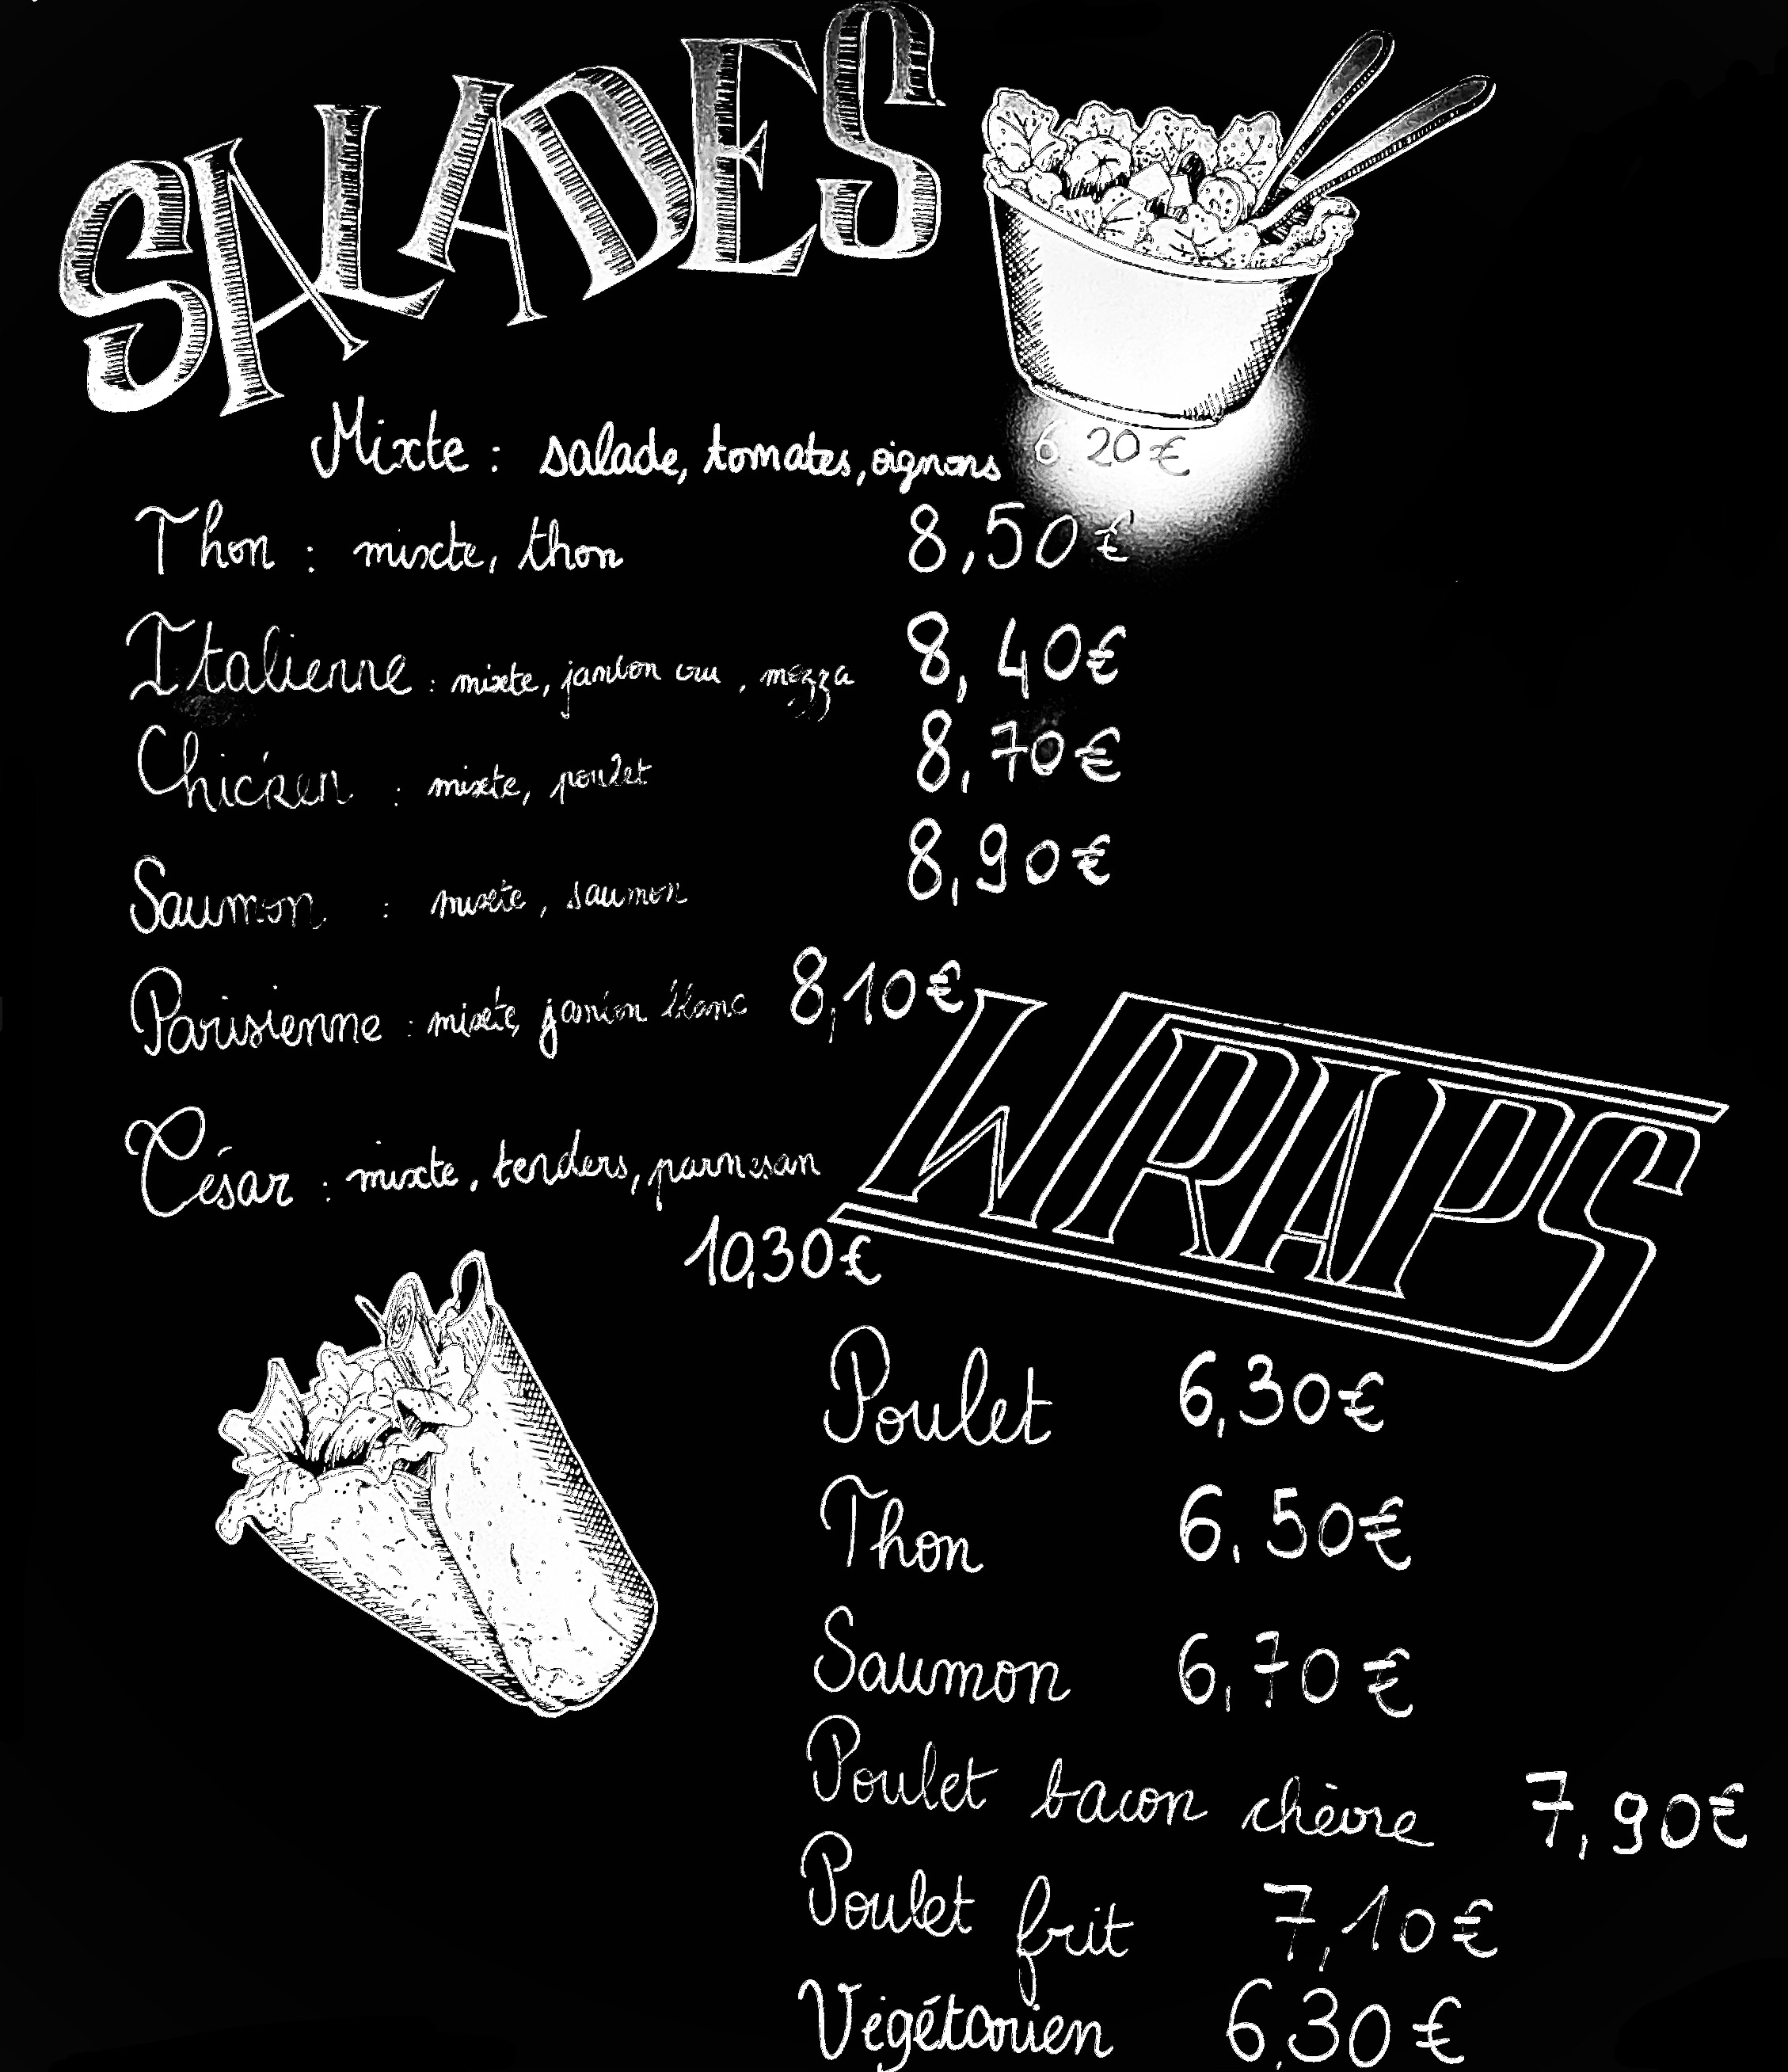 SALADES
Mixte : salade, tomates, oignons 6 20€
Thon : mixte, thon 8,50€
Italienne : mixte, jambon cru , mezza 8,40€
Chicken : mixte, poulet 8,70€
Saumon : mixte, saumon 8,90€
Parisienne : mixte, jambon blanc 8,10€
César : mixte, tenders, parmesan
10,30€
WRAPS
Poulet 6,30€
Thon 6,50€
Saumon 6,70€
Poulet bacon chèvre 7,90€
Poulet frit 7,10€
Végétarien 6,30€